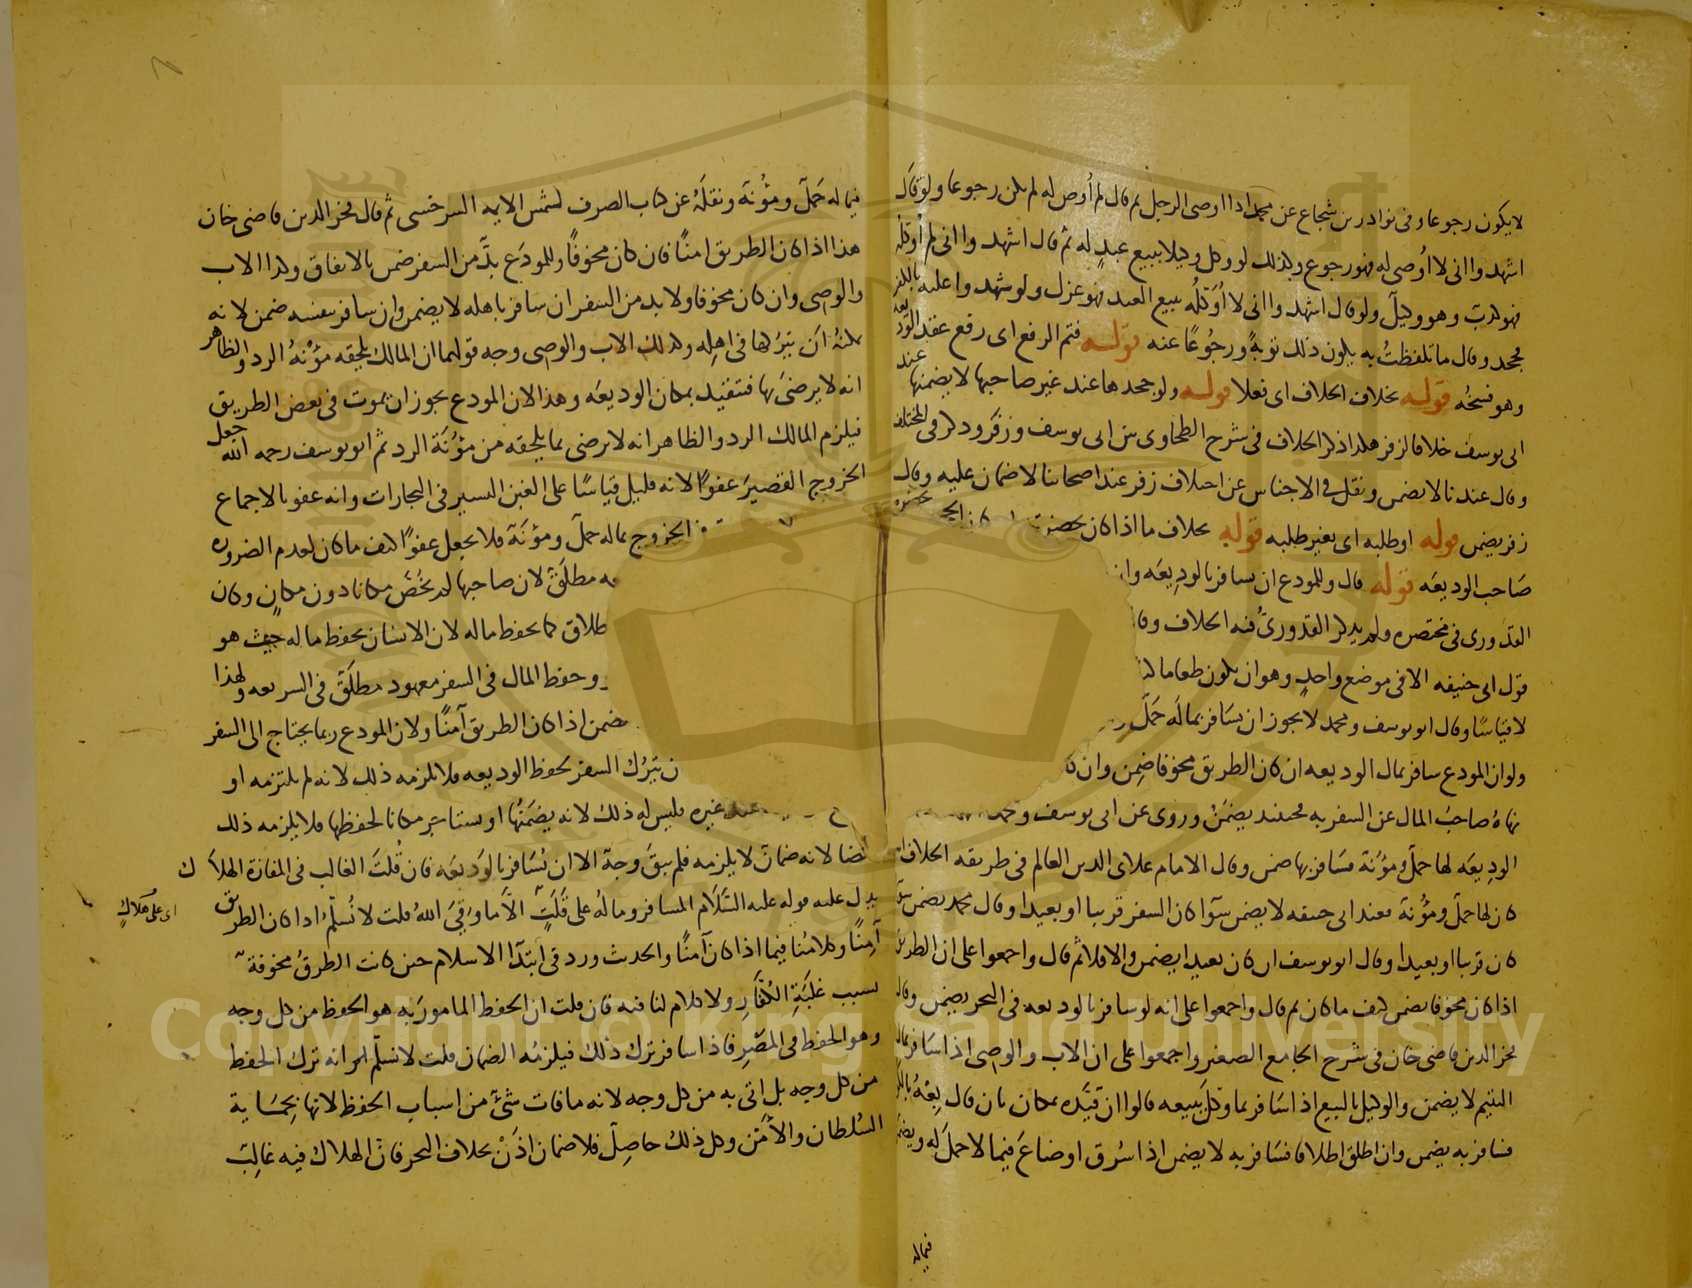 لا يكون رجوعا وفى نوادر بن شجاع عن محمد اذا اوصى الرجل ثم قال لم أوص له لم يكن رجوعا ولو قال
اشهدوا انى لا أوصى له فهو رجوع وكذلك لو وكل وكيلا ببيع عبد له ثم قال اشهدوا انى لم أوكله
فهو كذب وهو وكيل ولو قال اشهدوا انى لا أوكله ببيع العبد فهو عزل ولو شهدوا عليه بالكفر
فجحد وقال ما تلفظت به يكون ذلك توبة ورجوعا عنه قوله فتم الرفع اى رفع عقد الوديعة
وهو فسخه قوله بخلاف الخلاف اى فعلا قوله ولو جحدها عند غير صاحبها لا يضمنها عند
ابى يوسف خلافا لزفر هكذا ذكر الخلاف فى شرح الطحاوى بين ابى يوسف وزفر وذكر فى المختلف
وقال عندنا لا يضمن ونقل فى الاجناس عن اختلاف زفر عند اصحابنا لا ضمان عليه وقال
زفر يضمن قوله او طلبه اى بغير طلبه قوله بخلاف ما اذا كان بحضرته
صاحب الوديعه قوله قال وللمودع ان يسافر بالوديعه وان
القدورى فى مختصره ولم يذكر القدورى فيه الخلاف
قول ابى حنيفه الا فى موضع واحد وهو ان يكون طعاما
لا قياسا وقال ابو يوسف ومحمد لا يجوز ان يسافر بما له حمل
ولو ان المودع سافر بمال الوديعه ان كان الطريق مخوفا ضمن وان
نهاه صاحب المال عن السفر به فحينئذ يضمن وروى عن ابى يوسف
الوديعه لها حمل ومؤنة فسافر بها ضمن وقال الامام علاى الدين العالم فى طريقه الخلاف
كان لها حمل ومؤنة فعند ابى حنيفه لا يضمن سوآ كان السفر قريبا او بعيدا وقال محمد يضمن سوآ
كان قريبا او بعيدا وقال ابو يوسف ان كان بعيدا يضمن والا فلا ثم قال واجمعوا على ان الطريق
اذا كان مخوفا يضمن كيف ما كان ثم قال واجمعوا على انه لو سافر بالوديعه فى البحر يضمن وقال
فخر الدين قاضى خان فى شرح الجامع الصغير واجمعوا على ان الاب والوصى اذا سافر بمال
اليتيم لا يضمن والوكيل بالبيع اذا سافر بما وكل ببيعه قالوا ان قيده بمكان بان قال بعه بالكوفة
فسافر به يضمن وان اطلق اطلاقا فسافر به لا يضمن اذا سرق او ضاع فيما لا حمل له ويضمن
فيماله
فيما له حمل ومؤنة ونقله عن كتاب الصرف لشمس الايمه السرخسى ثم قال فخر الدين قاضى خان
هذا اذا كان الطريق امنا فان كان مخوفا وللمودع بد من السفر ضمن بالاتفاق وكذا الاب
والوصى وان كان مخوفا ولا بد من السفر ان سافر باهله لا يضمن وان سافر بنفسه ضمن لانه
يمكنه ان يتركها فى اهله وكذلك الاب والوصى وجه قولهما ان المالك يلحقه مؤنة الرد والظاهر
انه لا يرضى بها فتتقيد بمكان الوديعه وهذا لان المودع يجوز ان يموت فى بعض الطريق
فيلزم المالك الرد والظاهر انه لا يرضى بما يلحقه من مؤنة الرد ثم ابو يوسف رحمه الله جعل
الخروج القصير عفوا لانه قليل قياسا على الغبن اليسير فى التجارات وانه عفو بالاجماع
الخروج بماله حمل ومؤنة فلا يجعل عفوا كيف ما كان لعدم الضروره
مطلق لان صاحبها لم يخص مكانا دون مكان وكان
طلاق كما يحفظ ماله لان الانسان يحفظ ماله حيث هو
وحفظ المال فى السفر معهود مطلق فى الشريعه ولهذا
يضمن اذا كان الطريق آمنا ولان المودع ربما يحتاج الى السفر
ن يترك السفر بحفظ الوديعه فلا يلزمه ذلك لانه لم يلتزمه او
عند غيره فليس له ذلك لانه يضمنها او يستاجر مكانا لحفظها فلا يلزمه ذلك
ايضا لانه ضمان لا يلزمه فلم يبق وجه الا ان يسافر بالوديعه فان قلت الغالب فى المفازة الهلاك
بدليل عليه قوله عليه السلام المسافر وماله على قلت الا ما وقى الله قلت لا نسلم اذا كان الطريق
آمنا وكلامنا فيما اذا كان آمنا والحديث ورد فى ابتدآ الاسلام حين كانت الطرق مخوفة
بسبب غلبة الكفار ولا كلام لنا فيه فان قلت ان الحفظ المامور به هو الحفظ من كل وجه
وهو الحفظ فى المصر فاذا سافر ترك ذلك فيلزمه الضمان قلت لا نسلم انه ترك الحفظ
من كل وجه بل اتى به من كل وجه لانه ما فات شئ من اسباب الحفظ لانها بحماية
السلطان والأمن وكل ذلك حاصل فلا ضمان اذن بخلاف البحر فان الهلاك فيه غالب
اى على هلاك
Copyright © King Saud University